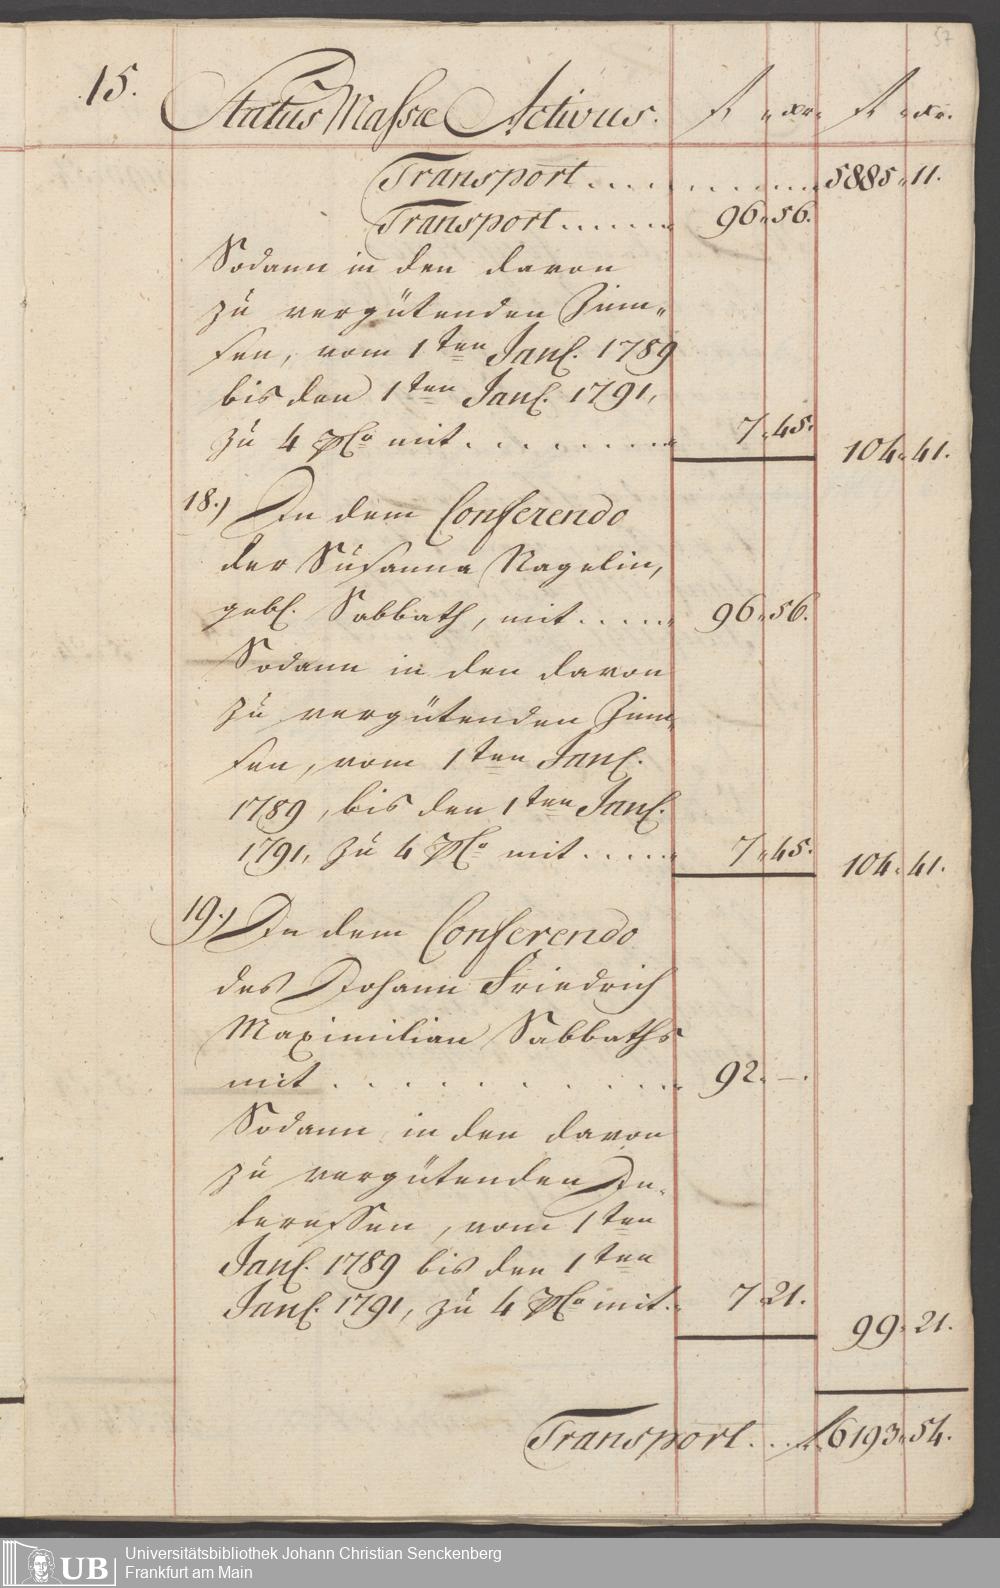 57
15. Status Massæ Activus. fl. xr. fl. xr.
Transport . . . . . . . . . . . . 5885. 11.
Transport . . . . . . 96. 56.
Sodann in den davon
zu vergütenden Zinn-
sen, vom 1ten Janl. 1789
bis den 1ten Janl. 1791,
zu 4 PCo mit . . . . . . . . 7. 45. 104. 41.
18.) In dem Conferendo
der Susanna Nagelin,
gebl. Sabbath, mit . . . . . 96. 56.
Sodann in den davon
zu vergütenden Zinn-
sen, vom 1ten Janl.
1789, bis den 1ten Janl.
1791, zu 4 PCo mit . . . . . 7. 45. 104. 41.
19.) In dem Conferendo
des Johann Friedrich
Maximilian Sabbaths
mit . . . . . . . . . . 92. —.
Sodann in den davon
zu vergütenden In-
teressen, vom 1ten
Janl. 1789 bis den 1ten
Janl. 1791, zu 4 PCo mit . . 7. 21. 99. 21.
Transport . . . fl. 6193. 54.
UB Universitätsbibliothek Johann Christian Senckenberg
Frankfurt am Main